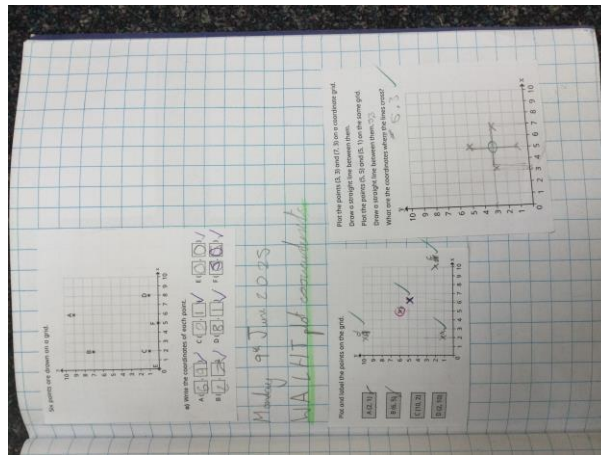 Six points are drawn on a grid.
a) Write the coordinates of each point.
A (6, 9)
C (2, 1)
E (0, 0)
D (8, 1)
Monday 9th June 2025
WALHT plot coordinates
Plot and label the points on the grid.
A (2, 1)
B (6, 5)
C (10, 2)
D (2, 10)
Plot the points (3, 3) and (7, 3) on a coordinate grid.
Draw a straight line between them.
Plot the points (5, 5) and (5, 1) on the same grid.
Draw a straight line between them.
What are the coordinates where the lines cross?
5, 3